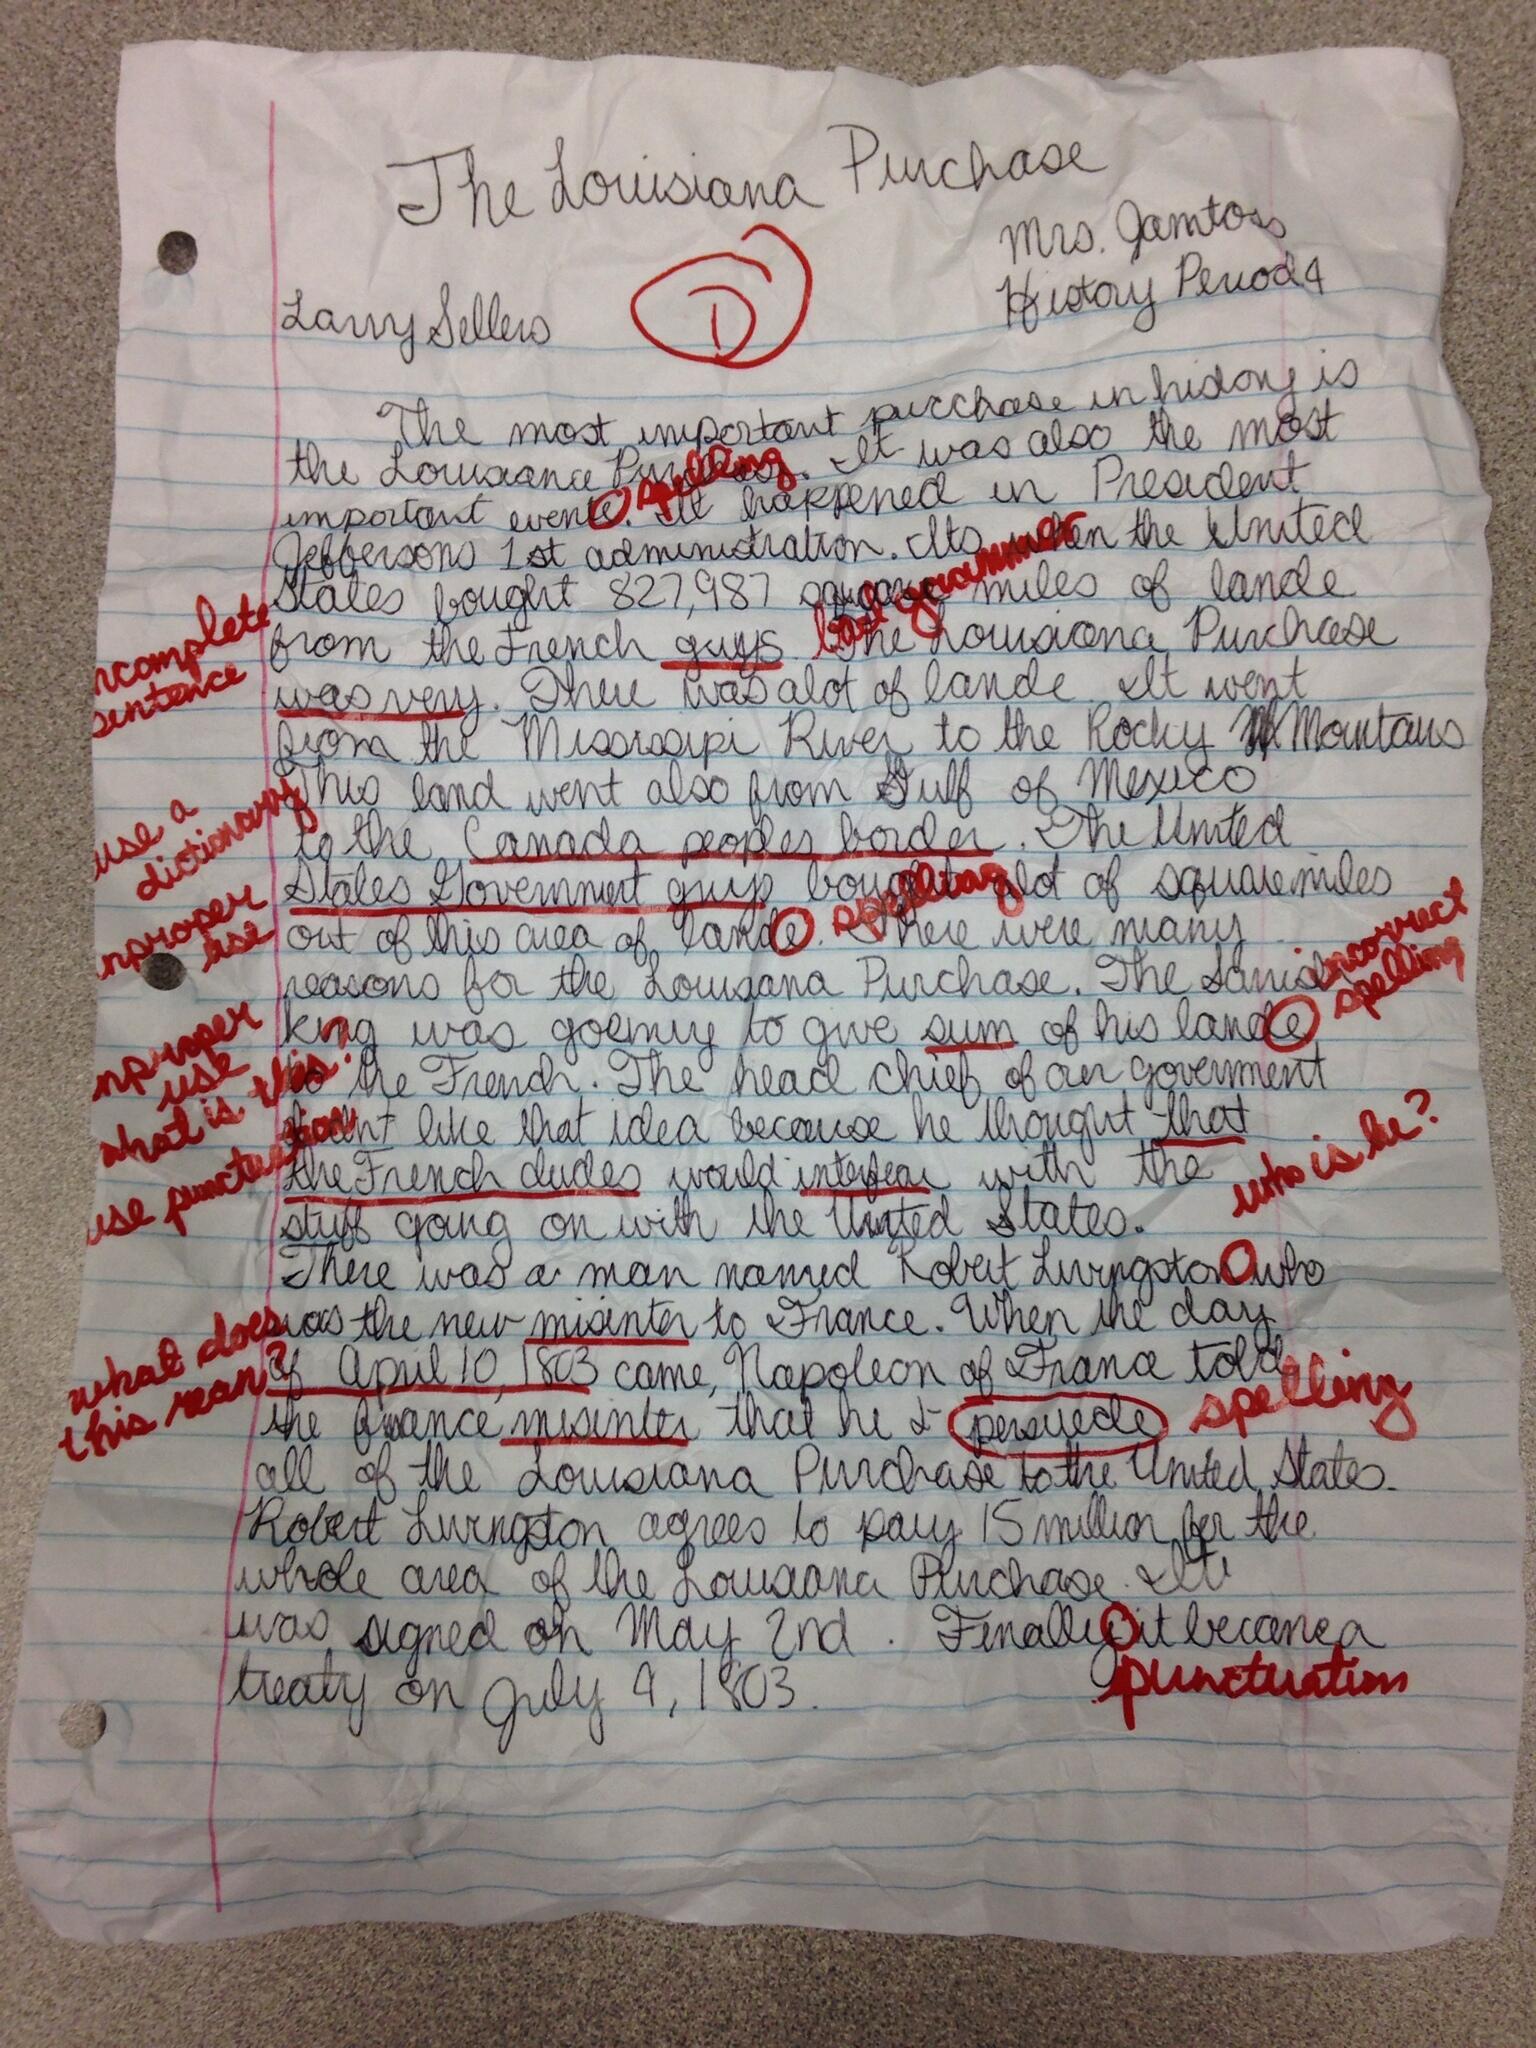 The Louisiana Purchase
Mrs. Jamtoss
History Period 4
Larry Sellers
D
The most important purchase in history is
the Louisiana It was also the most
spelling
important evente. It happened in President
Jeffersons 1st administration. Its when the United
States bought 827,987 square miles of lande
bad grammar
incomplete
sentence
from the French guys The Louisiana Purchase
was very. There was alot of lande. It went
from the Mississipi River to the Rocky Mountans
This land went also from Gulf of Mexico
use a
dictionary
to the Canada peoples border. The United
States Government guys bought alot of square miles
spelling
improper
use
out of this area of lande. There were many
reasons for the Louisiana Purchase. The
incorrect
spelling
king was to give sum of his lande
improper
use
what is this?
to the French. The head chief of our government
didnt like that idea because he thought that
use punctuation
the French dudes would interfear with the
who is he?
stuff going on with the United States.
There was a man named Robert Livingston who
was the new misinter to France. When the day
what does
this mean?
of April 10, 1803 came, Napoleon of France told
the france misinter that he persuede
spelling
all of the Louisiana Purchase to the United States.
Robert Livingston agrees to pay 15 million for the
whole area of the Louisiana Purchase. It
was signed on May 2nd. Finally it became a
punctuation
treaty on July 4, 1803.